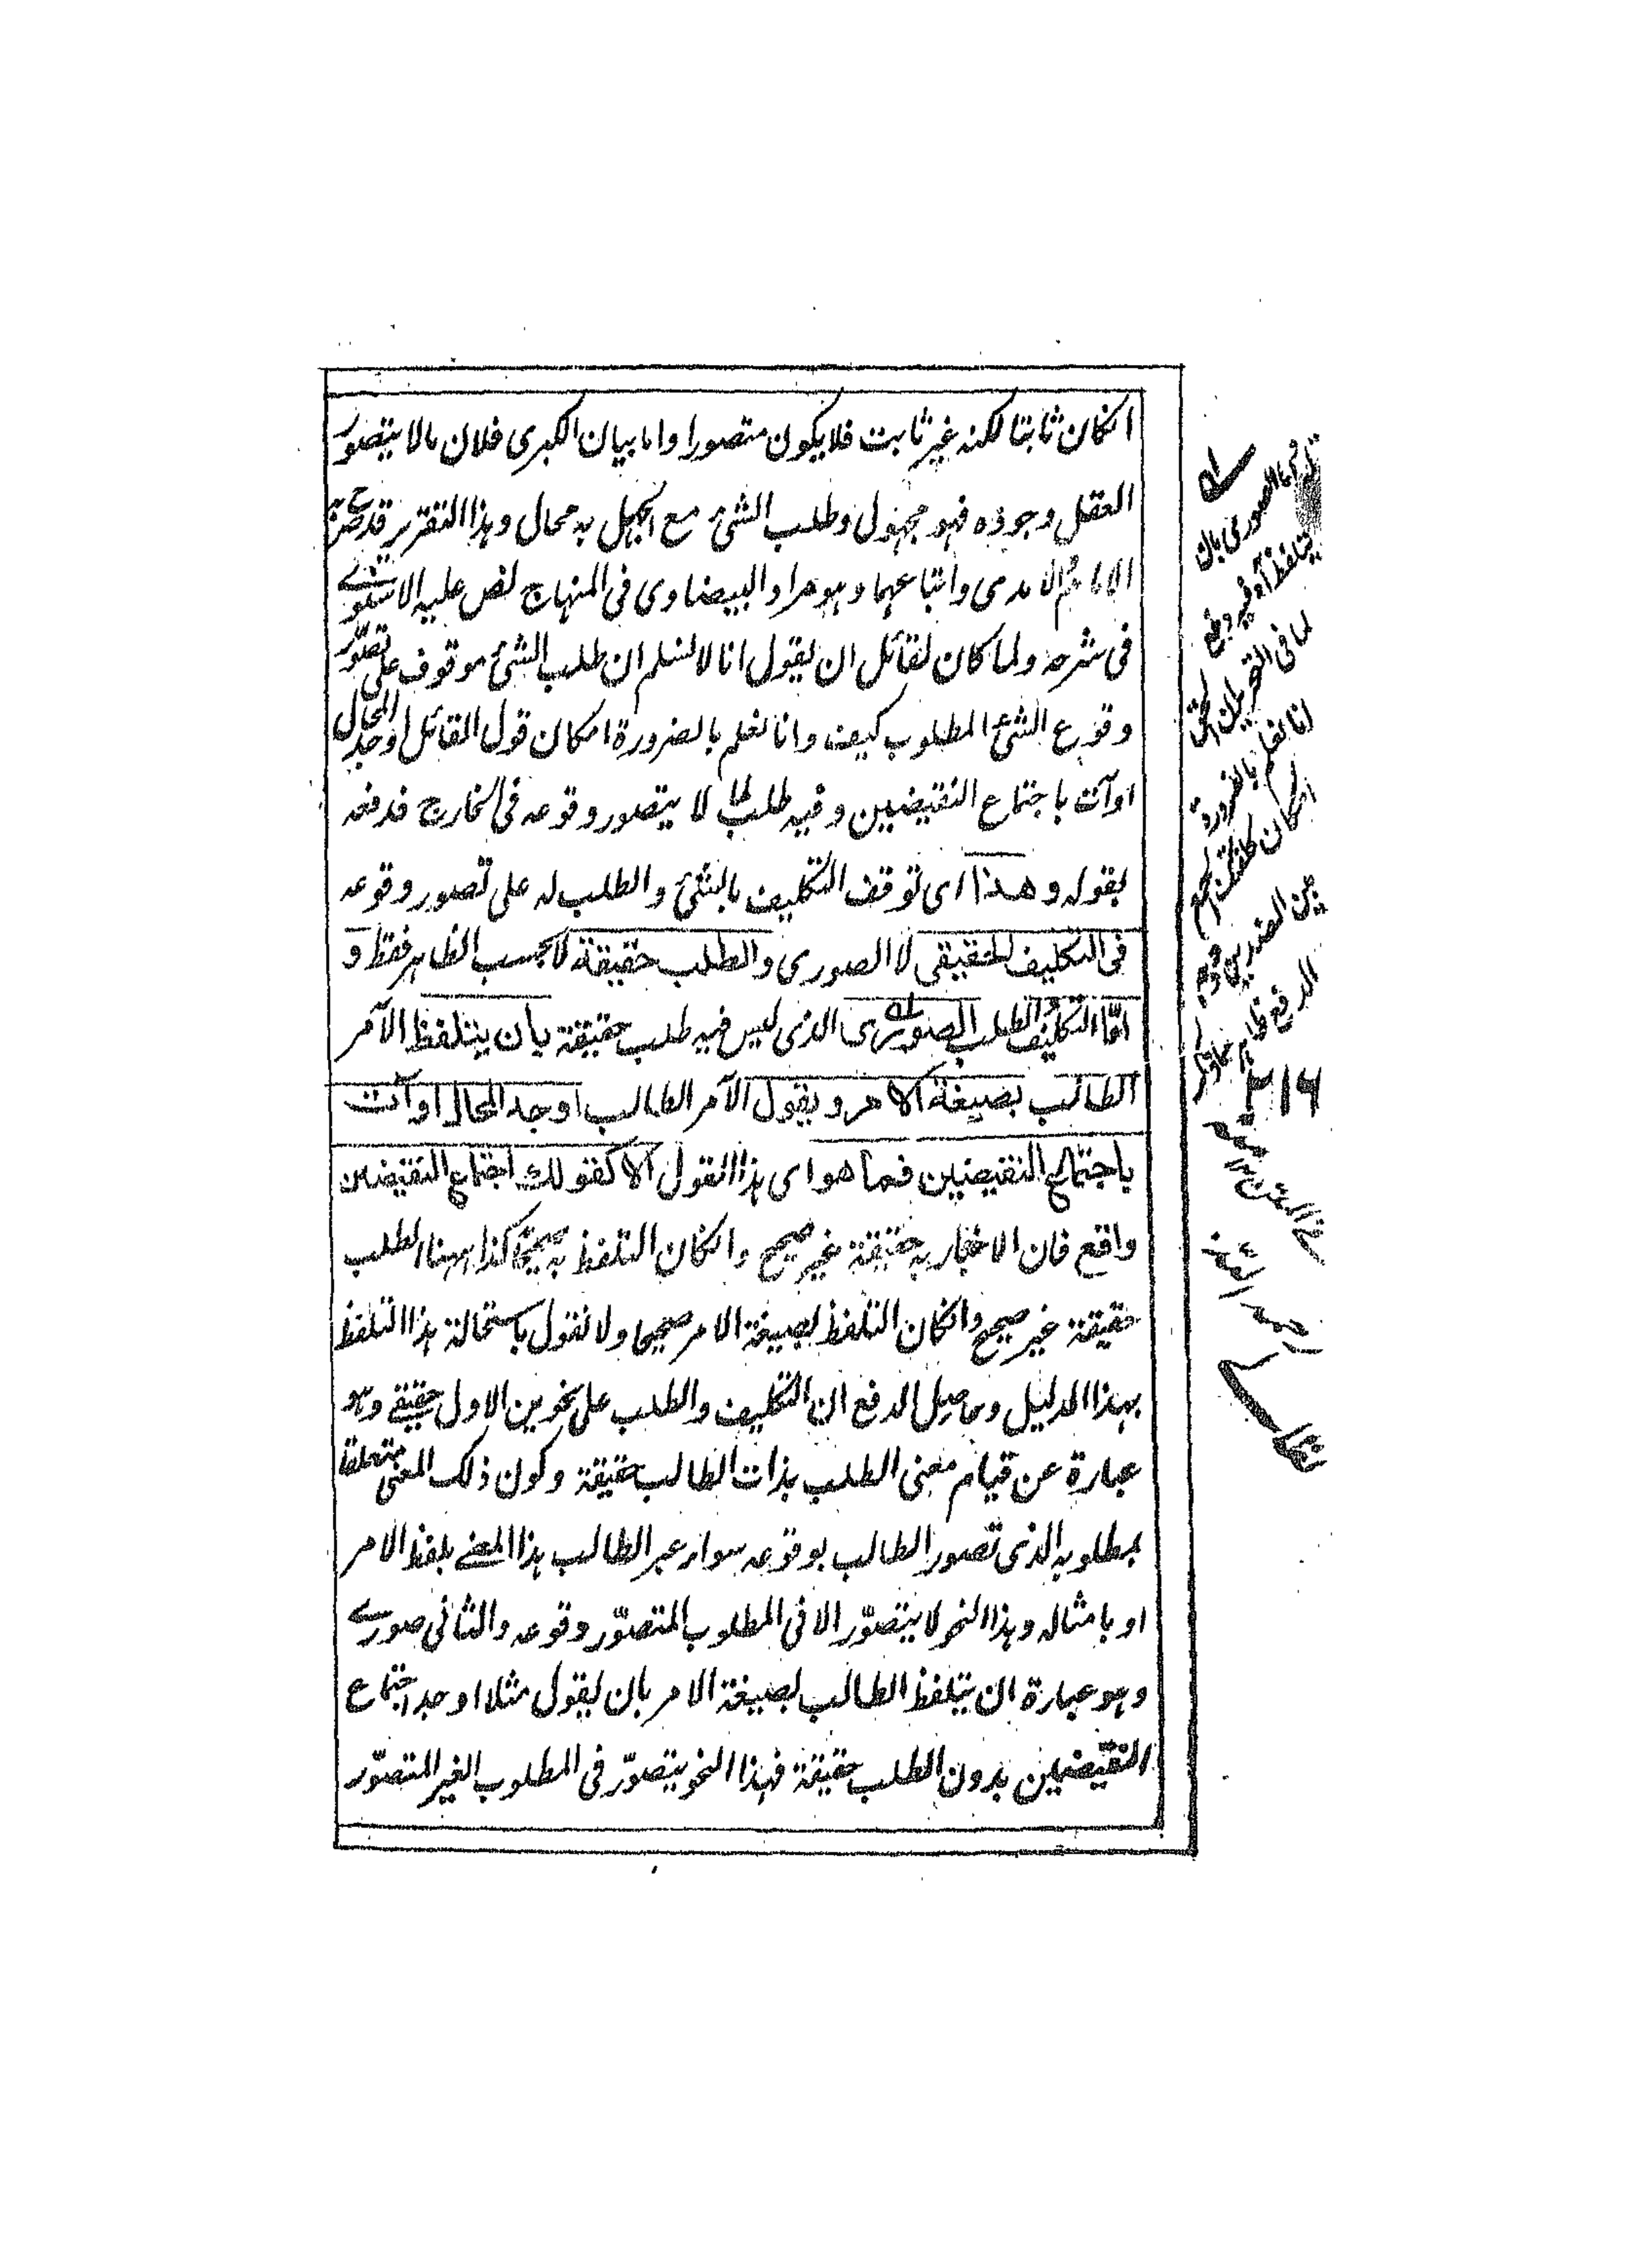 انكان ثابتا لكنه غير ثابت فلا يكون متصورا واما بيان الكبرى فلان مالا يتصور
العقل وجوده فهو مجهول وطلب الشئ مع الجهل به محال وهذا التقرير قد صرح به
الآمدى واتباعهما وهو مراد البيضاوى فى المنهاج نص عليه الاسنوے
فى شرحه ولما كان لقائل ان يقول انا لا نسلم ان طلب الشئ موقوف على تصور
وقوع الشئ المطلوب كيف وانا نعلم بالضرورة امكان قول القائل اوجد المحال
اوآت باجتماع النقيضين وفيه طلب لما لا يتصور وقوعه فى الخارج فدفعه
بقوله وهذا اى توقف التكليف بالشئ والطلب له على تصور وقوعه
فى التكليف الحقيقى لا الصورى والطلب حقيقة لا بحسب الظاهر فقط و
امّا التكليف والطلب الصورى الذى ليس فيه طلب حقيقة بان يتلفظ الآمر
الطالب بصيغة الامر ويقول الآمر الطالب اوجد المحال اوآت
باجتماع النقيضين فما هو اى هذا القول الا كقولك اجتماع النقيضين
واقع فان الاخبار به حقيقة غير صحيح وانكان التلفظ به صحيحا كذا ههنا الطلب
حقيقة غير صحيح وانكان التلفظ بصيغة الامر صحيحا ولا نقول باستحالة هذا التلفظ
بهذا الدليل وحاصل الدفع ان التكليف والطلب على نحوين الاول حقيقے وهو
عبارة عن قيام معنى الطلب بذات الطالب حقيقة وكون ذلك المعنى متعلقا
بمطلوبه الذى تصور الطالب بوقوعه سواء عبر الطالب هذا المعنے بلفظ الامر
او بامثاله وهذا النحو لا يتصوّر الا فى المطلوب المتصوّر وقوعه والثانى صورے
وهو عبارة ان يتلفظ الطالب بصيغة الامر بان يقول مثلا اوجد اجتماع
النقيضين بدون الطلب حقيقة فهذا النحو يتصوّر فى المطلوب الغير المتصوّر
الصورى بان
يتلفظ آه فيه دفع
لما فى التقرير من
انا نعلم بالضرورة
امكان كلفتك الجمع
بين الضدين
الدفع ظاهر
٢١٦